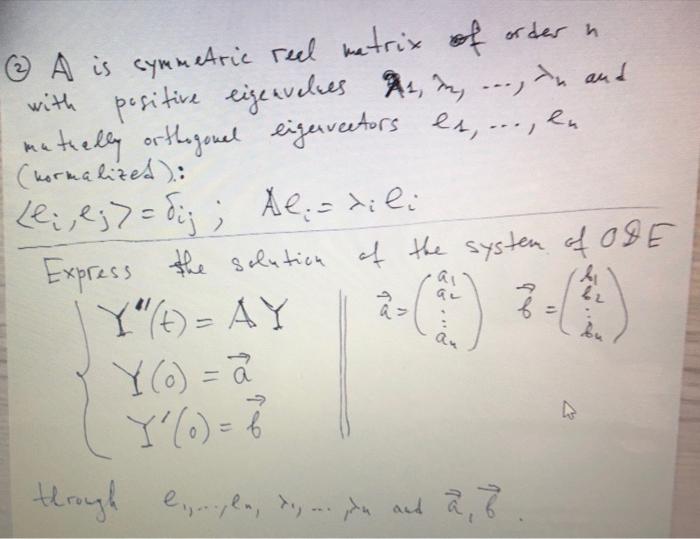 ② A is symmetric reel matrix of order n
with positive eigenvalues λ1, λ2, ..., λn and
mutually orthogonal eigenvectors e1, ..., en
(normalized).:
<ei, ej> = δij ; Aei = λi ei
Express the solution of the system of ODE
Y"(t) = AY
Y(0) = a⃗
Y'(0) = b⃗
a⃗ = (a1 a2 ⋮ an) b⃗ = (b1 b2 ⋮ bn)
through e1, ..., en, λ1, ... λn and a⃗, b⃗.